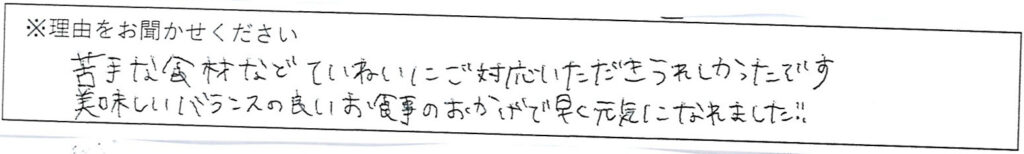 ※理由をお聞かせください
苦手な食材など ていねいにご対応いただきうれしかったです
美味しいバランスの良いお食事のおかげで早く元気になれました!!